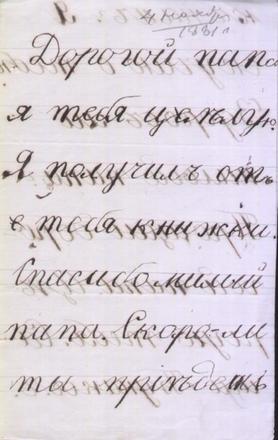 4 Ноября
1881 г.
Дорогой папа
я тебя цѣлую.
Я получилъ отъ
тебя книжки.
Спасибо милый
папа. Скоро-ли
ты пріѣдешь